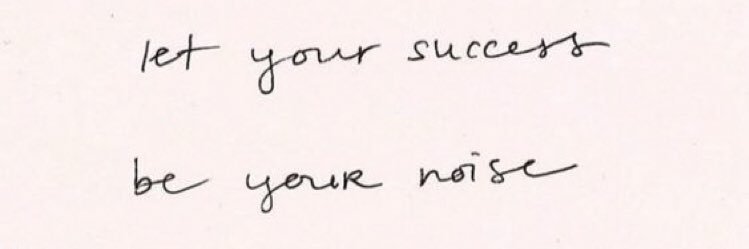 let your success
be your noise